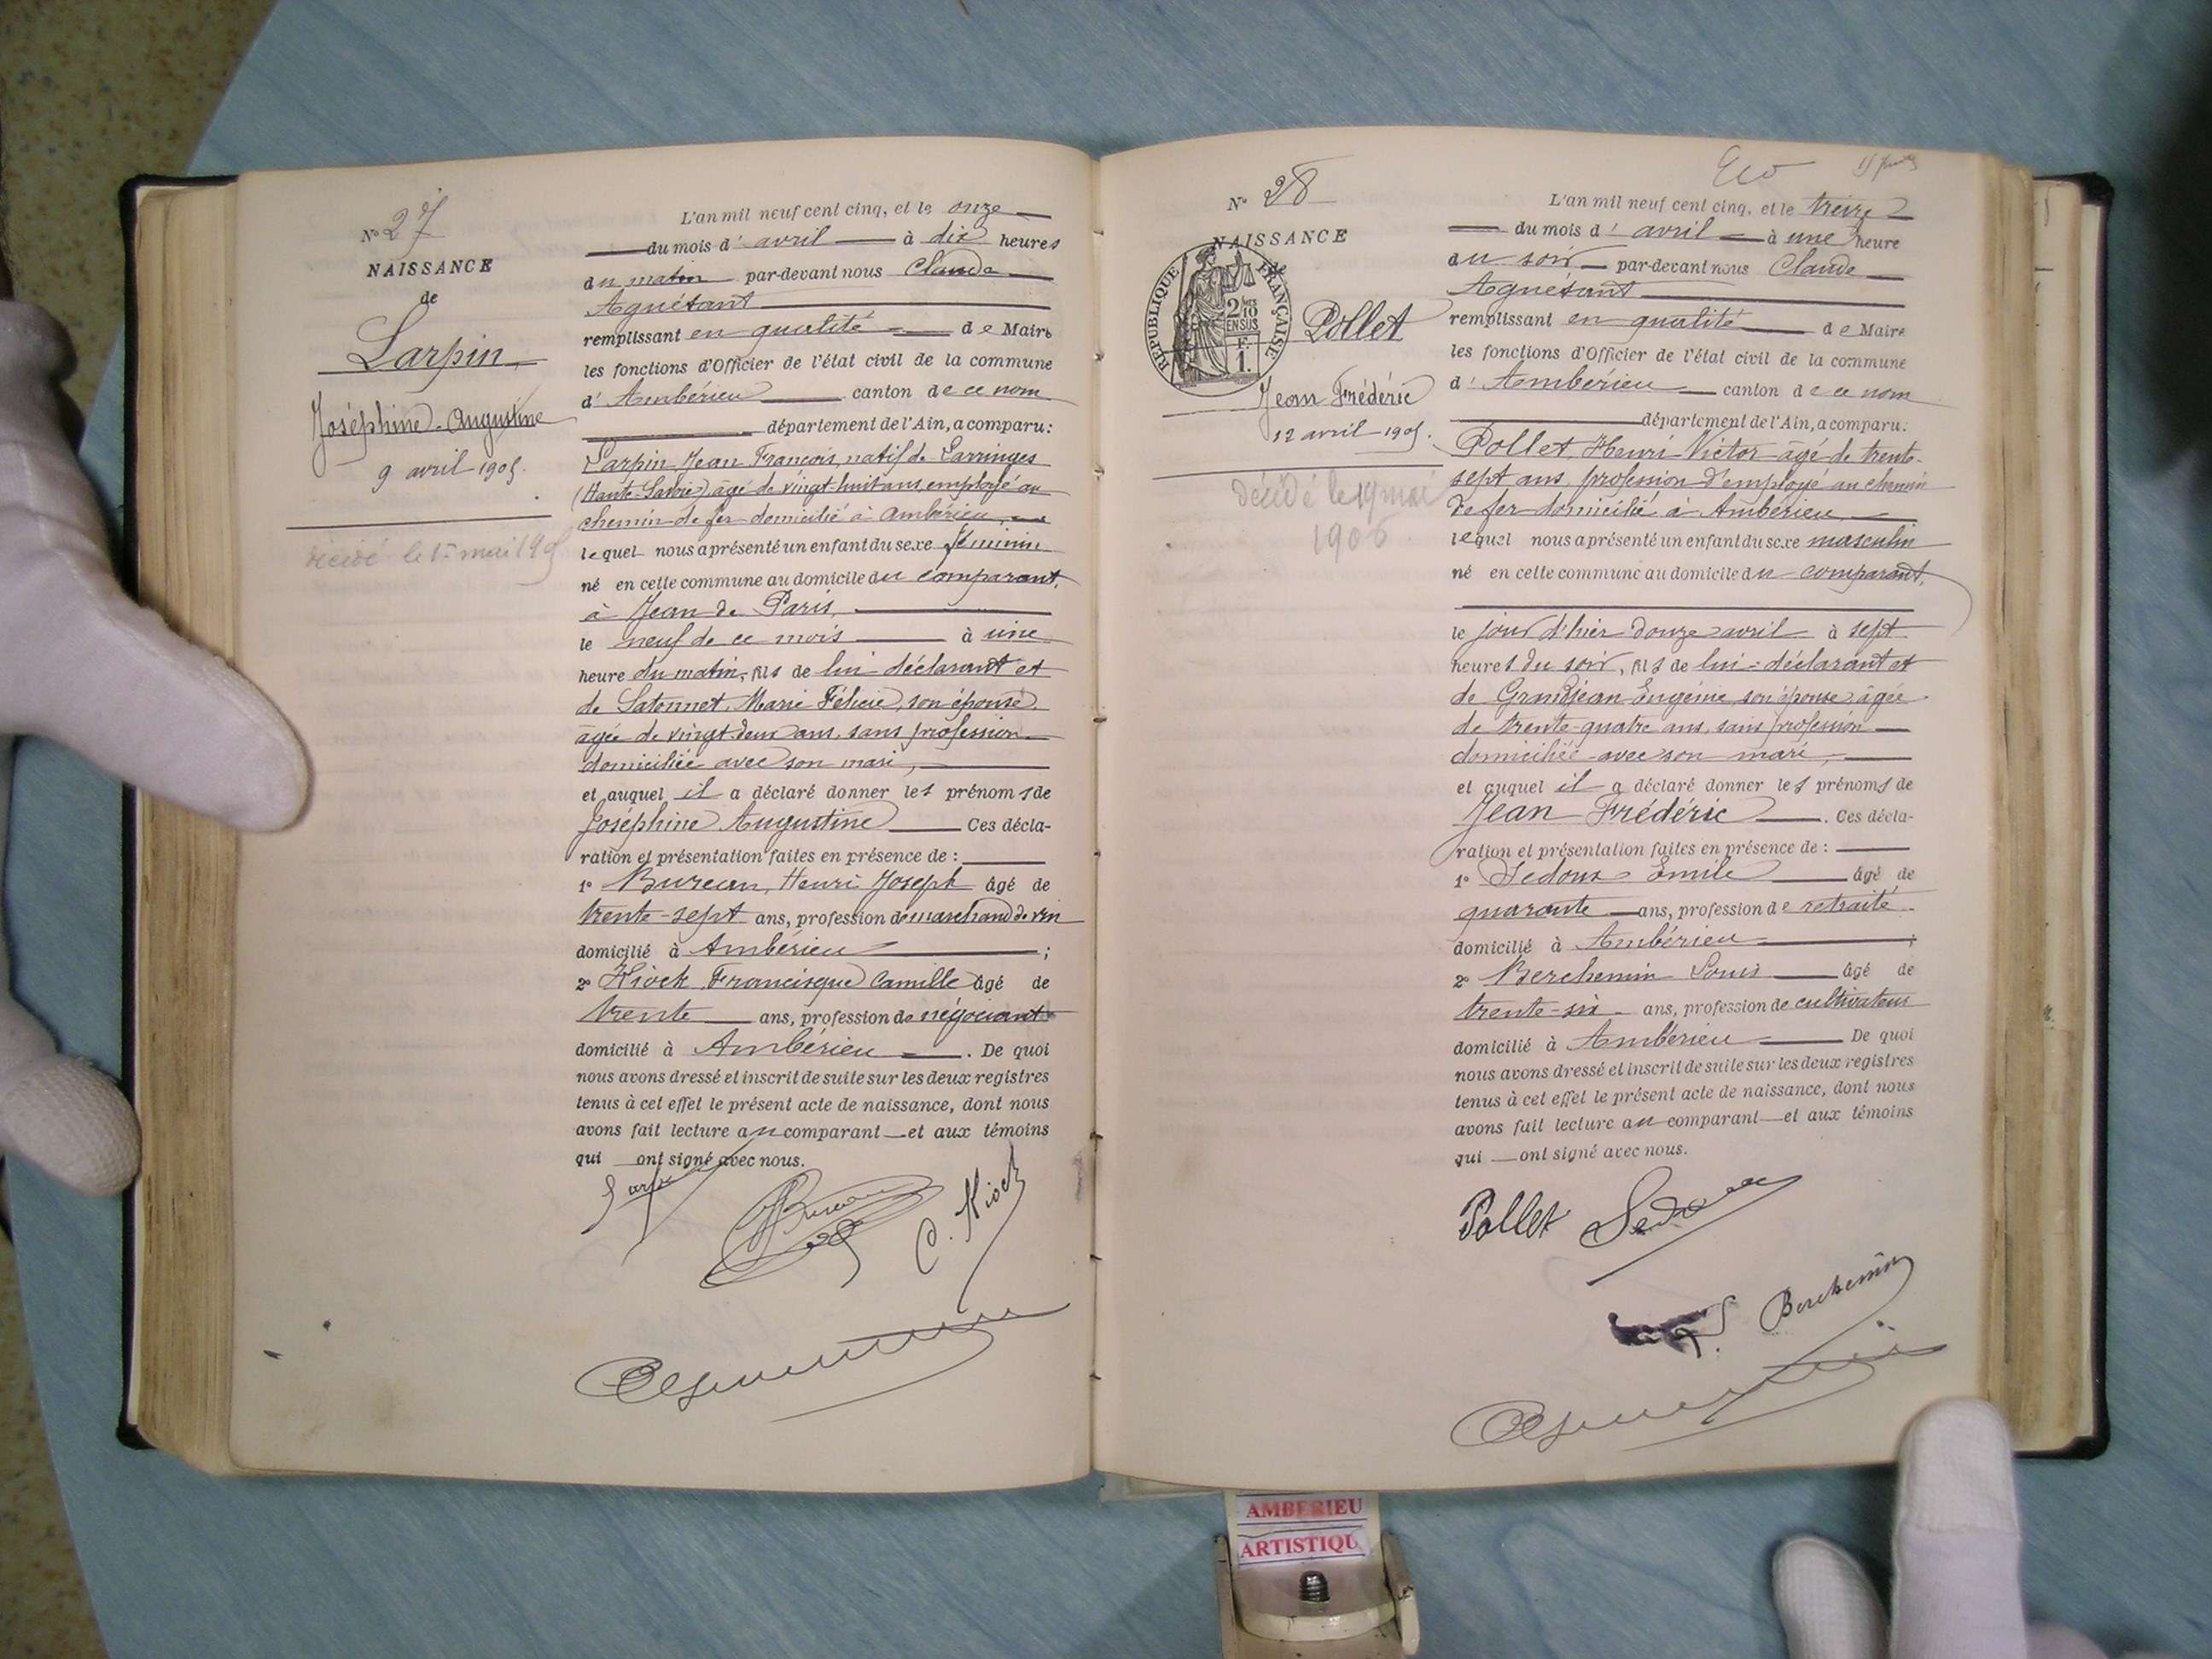 N° 27
NAISSANCE
de
Larpin
Joséphine Augustine
9 avril 1905.
décédé le 1er mai 1905
L'an mil neuf cent cinq, et le onze
du mois d'avril à dix heures
du matin par-devant nous Claude
Aguétant
remplissant en qualité de Maire
les fonctions d'Officier de l'état civil de la commune
d'Ambérieu canton de ce nom
département de l'Ain, a comparu:
Larpin, Jean François, natif de Larringes
(Haute-Savoie), âgé de vingt-huit ans, employé au
chemin de fer domicilié à Ambérieu,
lequel nous a présenté un enfant du sexe féminin
né en cette commune au domicile du comparant,
à Jean de Paris,
le neuf de ce mois à une
heure du matin, fils de lui déclarant et
de Satonnet, Marie Félicie, son épouse
âgée de vingt-deux ans, sans profession
domiciliée avec son mari,
et auquel il a déclaré donner les prénoms de
Joséphine Augustine Ces décla-
ration et présentation faites en présence de :
1° Bureau, Henri Joseph âgé de
trente-sept ans, profession de marchand de vin
domicilié à Ambérieu ;
2° Kiock Francisque Camille âgé de
trente ans, profession de négociant
domicilié à Ambérieu . De quoi
nous avons dressé et inscrit de suite sur les deux registres
tenus à cet effet le présent acte de naissance, dont nous
avons fait lecture au comparant et aux témoins
qui ont signé avec nous.
Larpin Bureau C. Kiock
N° 28
NAISSANCE
de
RÉPUBLIQUE FRANÇAISE
2/10
EN SUS
F.
1.
Pollet
Jean Frédéric
12 avril 1905.
décédé le 19 mai
1906
L'an mil neuf cent cinq, et le treize
du mois d'avril à une heure
du soir par-devant nous Claude
Aguétant
remplissant en qualité de Maire
les fonctions d'Officier de l'état civil de la commune
d'Ambérieu canton de ce nom
département de l'Ain, a comparu:
Pollet, Henri Victor âgé de trente-
sept ans, profession d'employé au chemin
de fer domicilié à Ambérieu,
lequel nous a présenté un enfant du sexe masculin
né en cette commune au domicile du comparant,
le jour d'hier douze avril à sept
heures du soir, fils de lui déclarant et
de Grandjean Eugénie, son épouse âgée
de trente-quatre ans, sans profession
domiciliée avec son mari,
et auquel il a déclaré donner les prénoms de
Jean Frédéric . Ces décla-
ration et présentation faites en présence de :
1° Sedoux Emile âgé de
quarante ans, profession de retraité
domicilié à Ambérieu ;
2° Berchemin Louis âgé de
trente-six ans, profession de cultivateur
domicilié à Ambérieu De quoi
nous avons dressé et inscrit de suite sur les deux registres
tenus à cet effet le présent acte de naissance, dont nous
avons fait lecture au comparant et aux témoins
qui ont signé avec nous.
Pollet Sedoux
Berchemin
AMBERIEU
ARTISTIQU